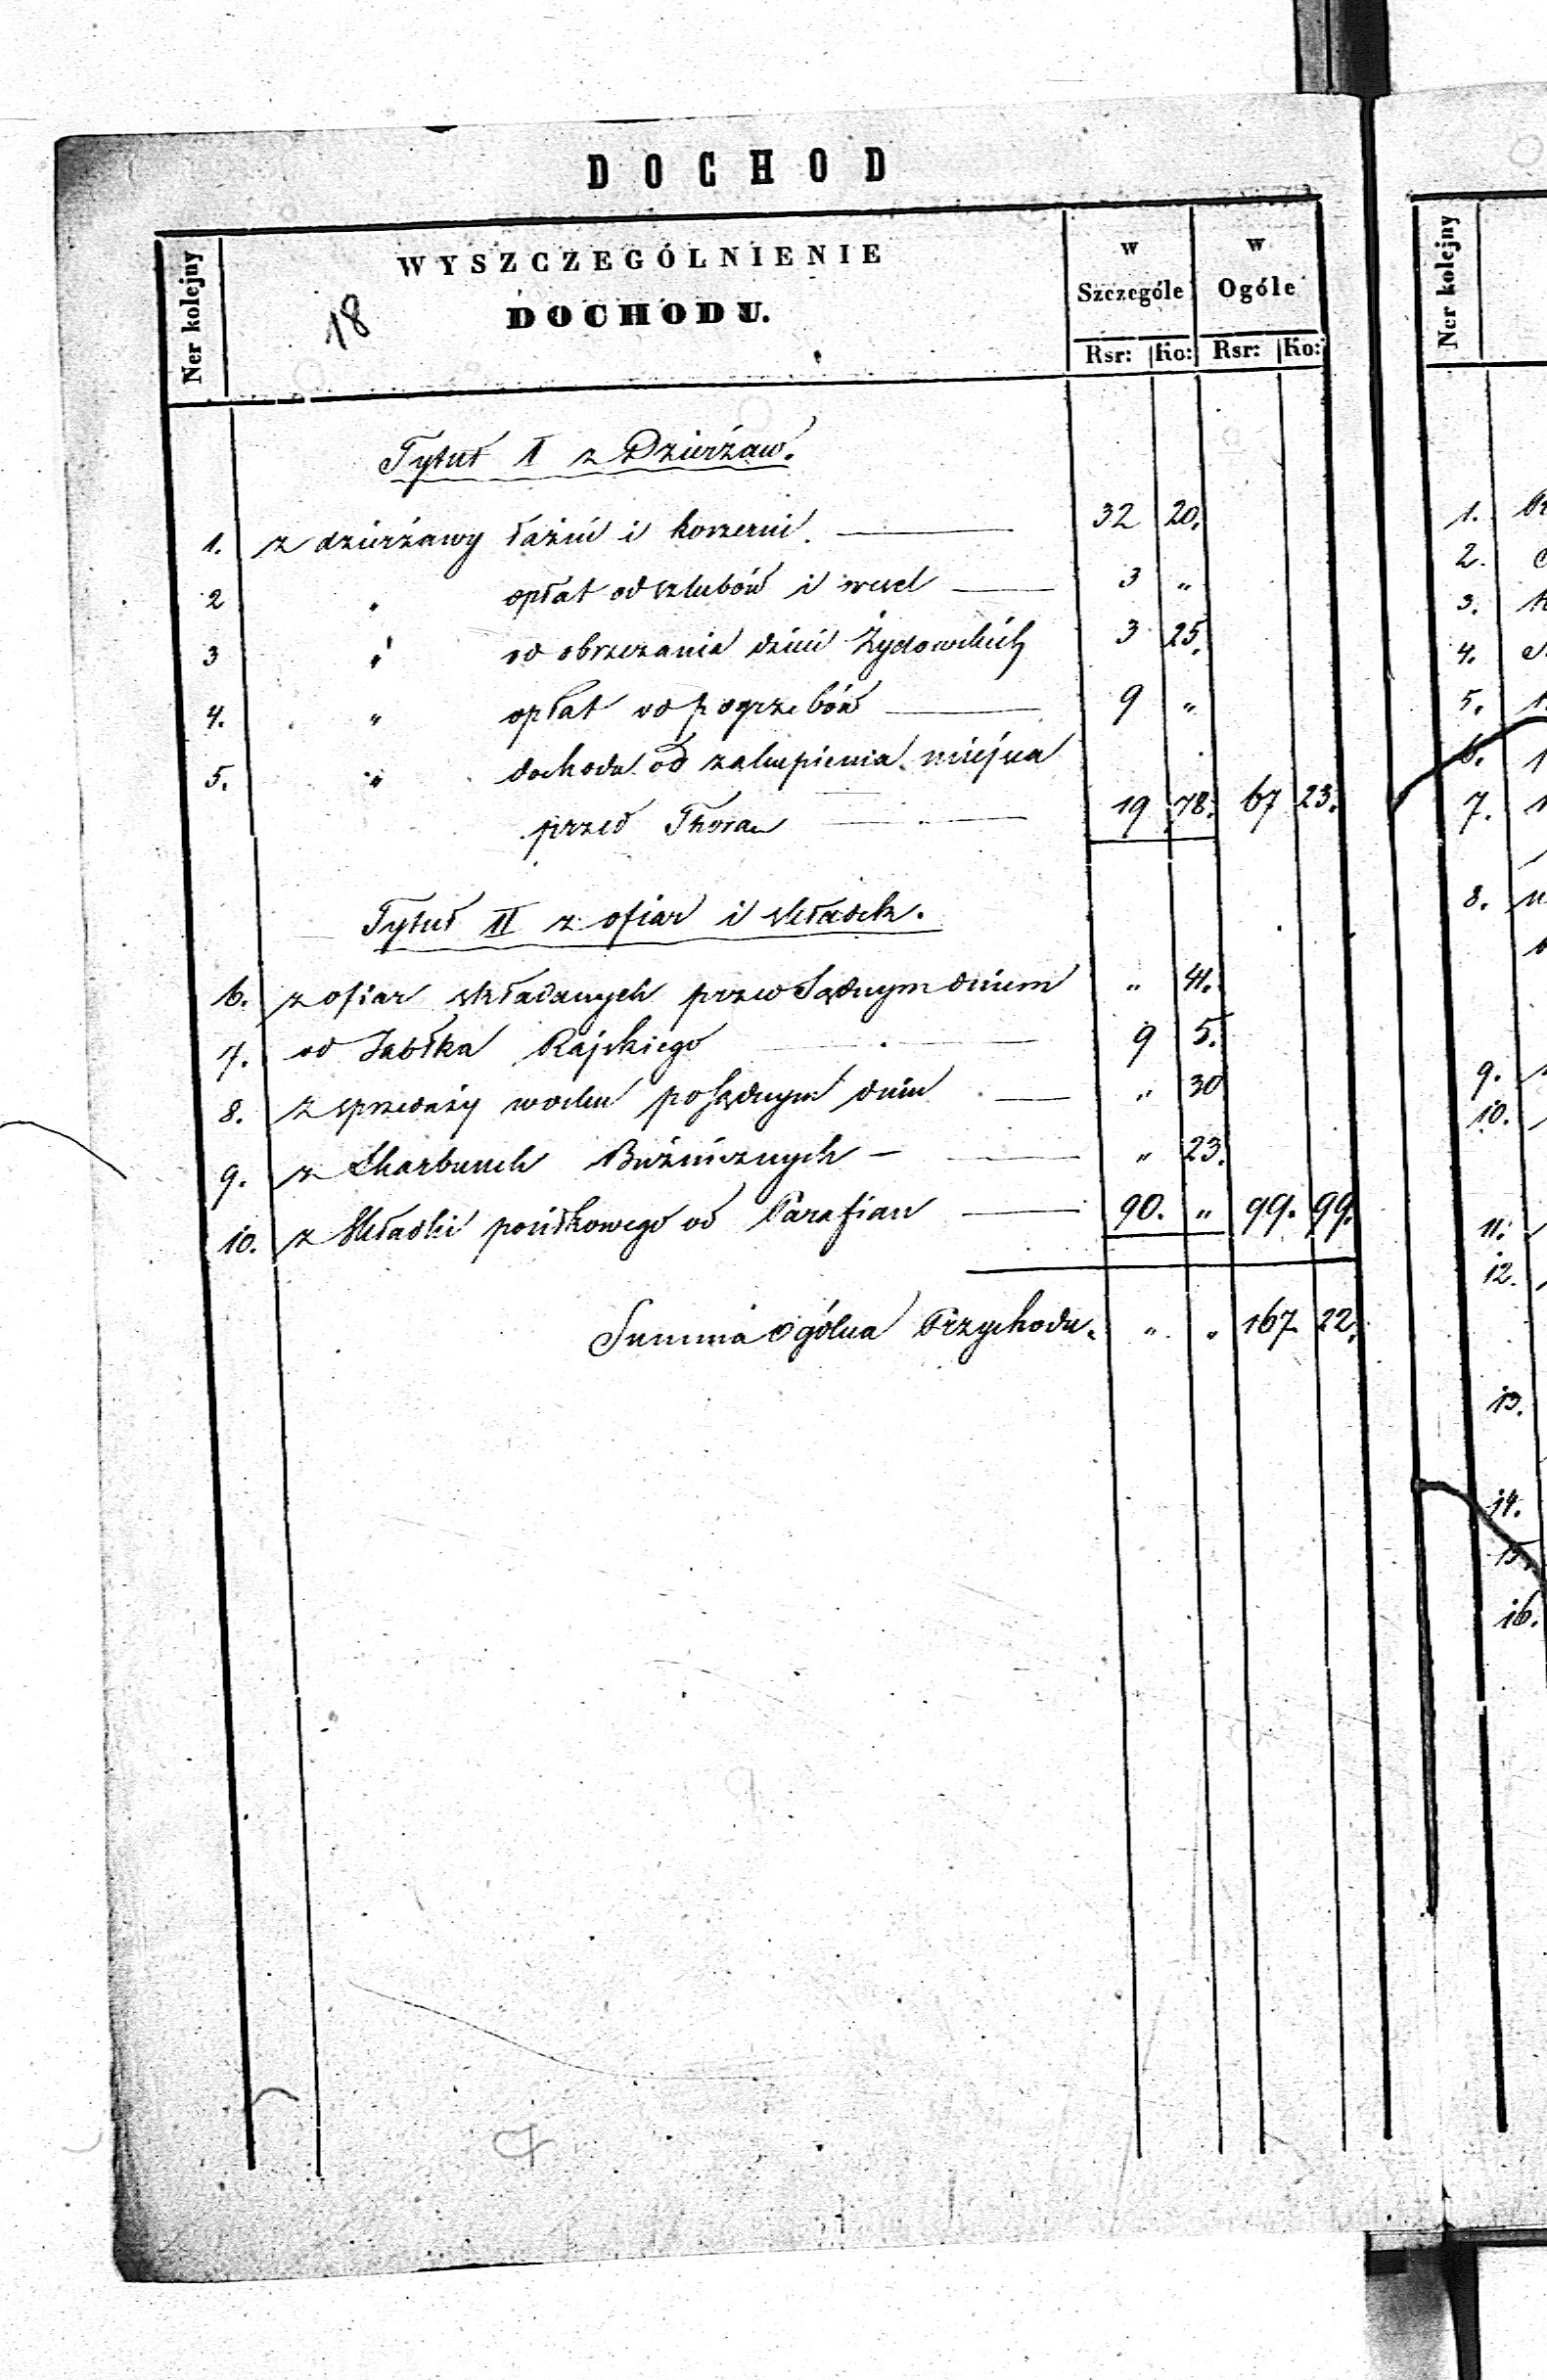 DOCHOD
Ner kolejny
WYSZCZEGÓLNIENIE
DOCHODU.
18
w Szczególe
w Ogóle
Rsr: Ko: Rsr: Ko:
Ner kolejny
Tytuł I z Dzierżaw.
1. z dzierżawy łaźni i koszerni 32 20.
2 " opłat od szlubów i wesel 3 "
3 " od obrzezania dzieci Żydowskich 3 25.
4. " opłat od pogrzebów 9 "
5. " dochodu od zakupienia miejsca
przed Thorą 19 78. 67 23.
Tytuł II z ofiar i składek.
6. z ofiar składanych przed Sądnym dniem " 41.
7. od Jabłka Rajskiego 9 5.
8. z sprzedaży wosku po Sądnym dniu " 30
9. z Skarbonek Bużnicznych " 23.
10. z Składki pośrodkowego od Parafian 90. " 99. 99.
Summa ogólna Przychodu. " " 167 22.
1.
2.
3.
4.
5.
6.
7.
8.
9.
10.
11.
12.
13.
14.
15.
16.